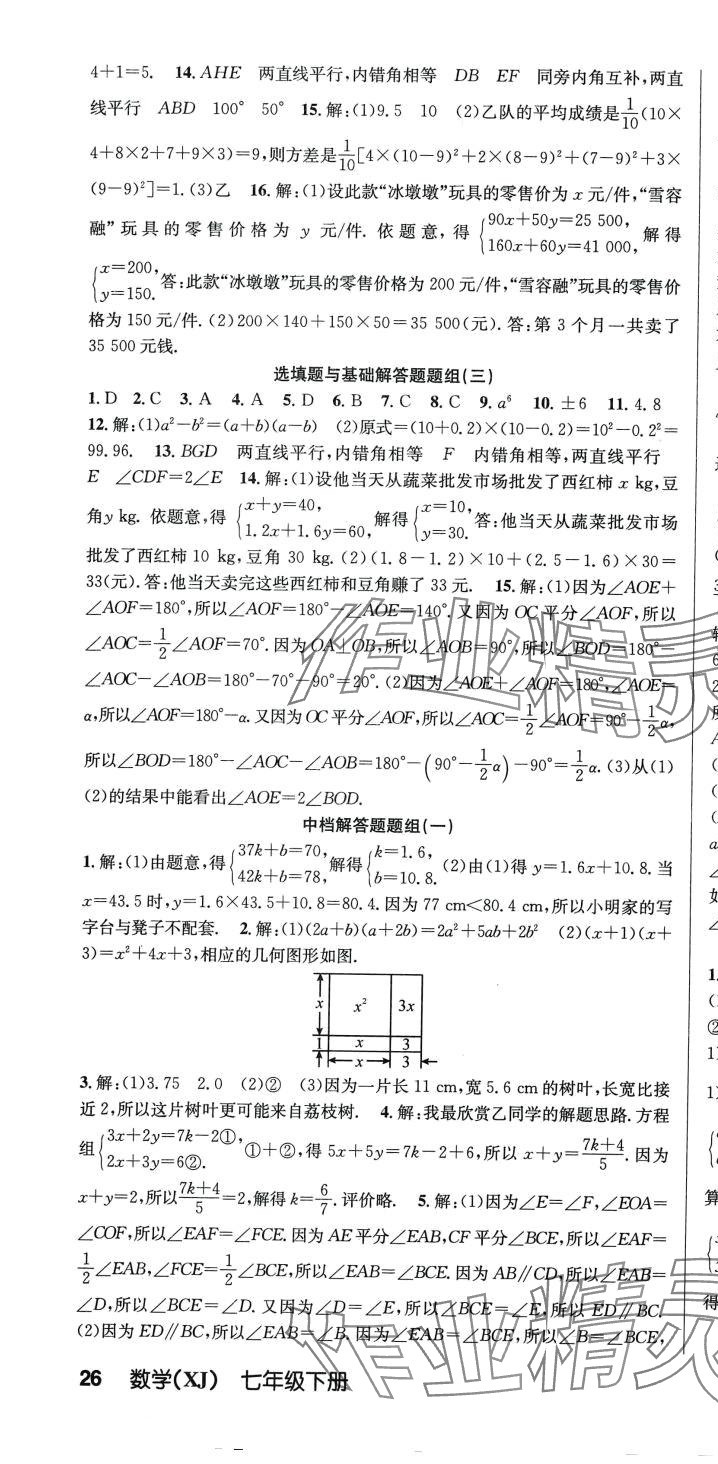 4+1=5. 14. AHE 两直线平行,内错角相等 DB EF 同旁内角互补,两直
线平行 ABD 100° 50° 15. 解:(1)9.5 10 (2)乙队的平均成绩是1/10(10×
4+8×2+7+9×3)=9,则方差是1/10[4×(10-9)²+2×(8-9)²+(7-9)²+3×
(9-9)²]=1. (3)乙 16. 解:(1)设此款“冰墩墩”玩具的零售价为 x 元/件,“雪容
融”玩具的零售价格为 y 元/件. 依题意,得{90x+50y=25 500, 160x+60y=41 000, 解得
{x=200, y=150. 答:此款“冰墩墩”玩具的零售价格为 200 元/件,“雪容融”玩具的零售价
格为 150 元/件. (2)200×140+150×50=35 500(元). 答:第 3 个月一共卖了
35 500 元钱.
选填题与基础解答题题组(三)
1. D 2. C 3. A 4. A 5. D 6. B 7. C 8. C 9. a⁶ 10. ±6 11. 4.8
12. 解:(1)a²-b²=(a+b)(a-b) (2)原式=(10+0.2)×(10-0.2)=10²-0.2²=
99.96. 13. BGD 两直线平行,内错角相等 F 内错角相等,两直线平行
E ∠CDF=2∠E 14. 解:(1)设他当天从蔬菜批发市场批发了西红柿 x kg,豆
角y kg. 依题意,得{x+y=40, 1.2x+1.6y=60, 解得{x=10, y=30. 答:他当天从蔬菜批发市场
批发了西红柿 10 kg,豆角 30 kg. (2)(1.8-1.2)×10+(2.5-1.6)×30=
33(元). 答:他当天卖完这些西红柿和豆角赚了 33 元. 15. 解:(1)因为∠AOE+
∠AOF=180°,所以∠AOF=180°-∠AOE=140°. 又因为 OC 平分∠AOF,所以
∠AOC=1/2∠AOF=70°. 因为OA⊥OB,所以∠AOB=90°,所以∠BOD=180°-
∠AOC-∠AOB=180°-70°-90°=20°. (2)因为∠AOE+∠AOF=180°,∠AOE=
α,所以∠AOF=180°-α. 又因为OC 平分∠AOF,所以∠AOC=1/2∠AOF=90°-1/2α,
所以∠BOD=180°-∠AOC-∠AOB=180°-(90°-1/2α)-90°=1/2α. (3)从(1)
(2)的结果中能看出∠AOE=2∠BOD.
中档解答题题组(一)
1. 解:(1)由题意,得{37k+b=70, 42k+b=78, 解得{k=1.6, b=10.8. (2)由(1)得 y=1.6x+10.8. 当
x=43.5 时,y=1.6×43.5+10.8=80.4. 因为 77 cm<80.4 cm,所以小明家的写
字台与凳子不配套. 2. 解:(1)(2a+b)(a+2b)=2a²+5ab+2b² (2)(x+1)(x+
3)=x²+4x+3,相应的几何图形如图.
x x² 3x
1 x 3
x 3
3. 解:(1)3.75 2.0 (2)② (3)因为一片长 11 cm,宽 5.6 cm 的树叶,长宽比接
近 2,所以这片树叶更可能来自荔枝树. 4. 解:我最欣赏乙同学的解题思路. 方程
组{3x+2y=7k-2①, 2x+3y=6②. ①+②,得 5x+5y=7k-2+6,所以 x+y=(7k+4)/5. 因为
x+y=2,所以(7k+4)/5=2,解得 k=6/7. 评价略. 5. 解:(1)因为∠E=∠F,∠EOA=
∠COF,所以∠EAF=∠FCE. 因为 AE平分∠EAB,CF 平分∠BCE,所以∠EAF=
1/2∠EAB,∠FCE=1/2∠BCE,所以∠EAB=∠BCE. 因为 AB∥CD,所以∠EAB=
∠D,所以∠BCE=∠D. 又因为∠D=∠E,所以∠BCE=∠E,所以 ED∥BC.
(2)因为 ED∥BC,所以∠EAB=∠B. 因为∠EAB=∠BCE,所以∠B=∠BCE,
26 数学(XJ) 七年级下册
作业精灵
作业精灵